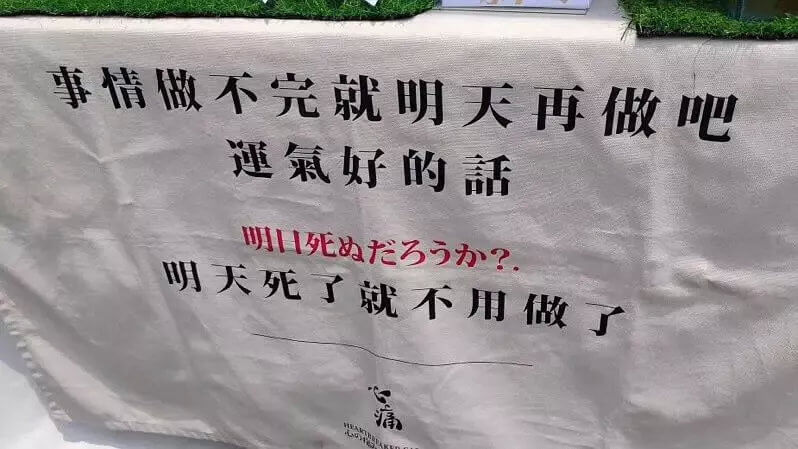 事情做不完就明天再做吧
運氣好的話
明日死ぬだろうか?.
明天死了就不用做了
心痛
HEARTBREAKER